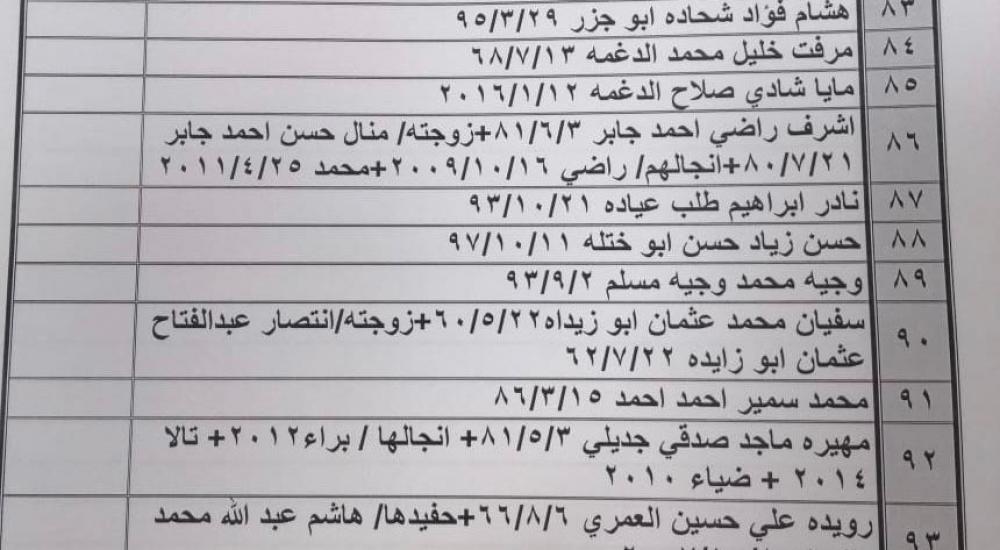 ٨٣ هشام فؤاد شحاده ابو جزر ٩٥/٣/٢٩
٨٤ مرفت خليل محمد الدغمه ٦٨/٧/١٣
٨٥ مايا شادي صلاح الدغمه ٢٠١٦/١/١٢
٨٦ اشرف راضي احمد جابر ٨١/٦/٣+زوجته/ منال حسن احمد جابر
٨٠/٧/٢١+انجالهم/ راضي ٢٠٠٩/١٠/١٦+محمد ٢٠١١/٤/٢٥
٨٧ نادر ابراهيم طلب عياده ٩٣/١٠/٢١
٨٨ حسن زياد حسن ابو ختله ٩٧/١٠/١١
٨٩ وجيه محمد وجيه مسلم ٩٣/٩/٢
٩٠ سفيان محمد عثمان ابو زيداه٦٠/٥/٢٢+زوجته/انتصار عبدالفتاح
عثمان ابو زايده ٦٢/٧/٢٢
٩١ محمد سمير احمد احمد ٨٦/٣/١٥
٩٢ مهيره ماجد صدقي جديلي ٨١/٥/٣+ انجالها / براء٢٠١٢+ تالا
٢٠١٤ + ضياء ٢٠١٠
٩٣ رويده علي حسين العمري ٦٦/٨/٦+حفيدها/ هاشم عبد الله محمد